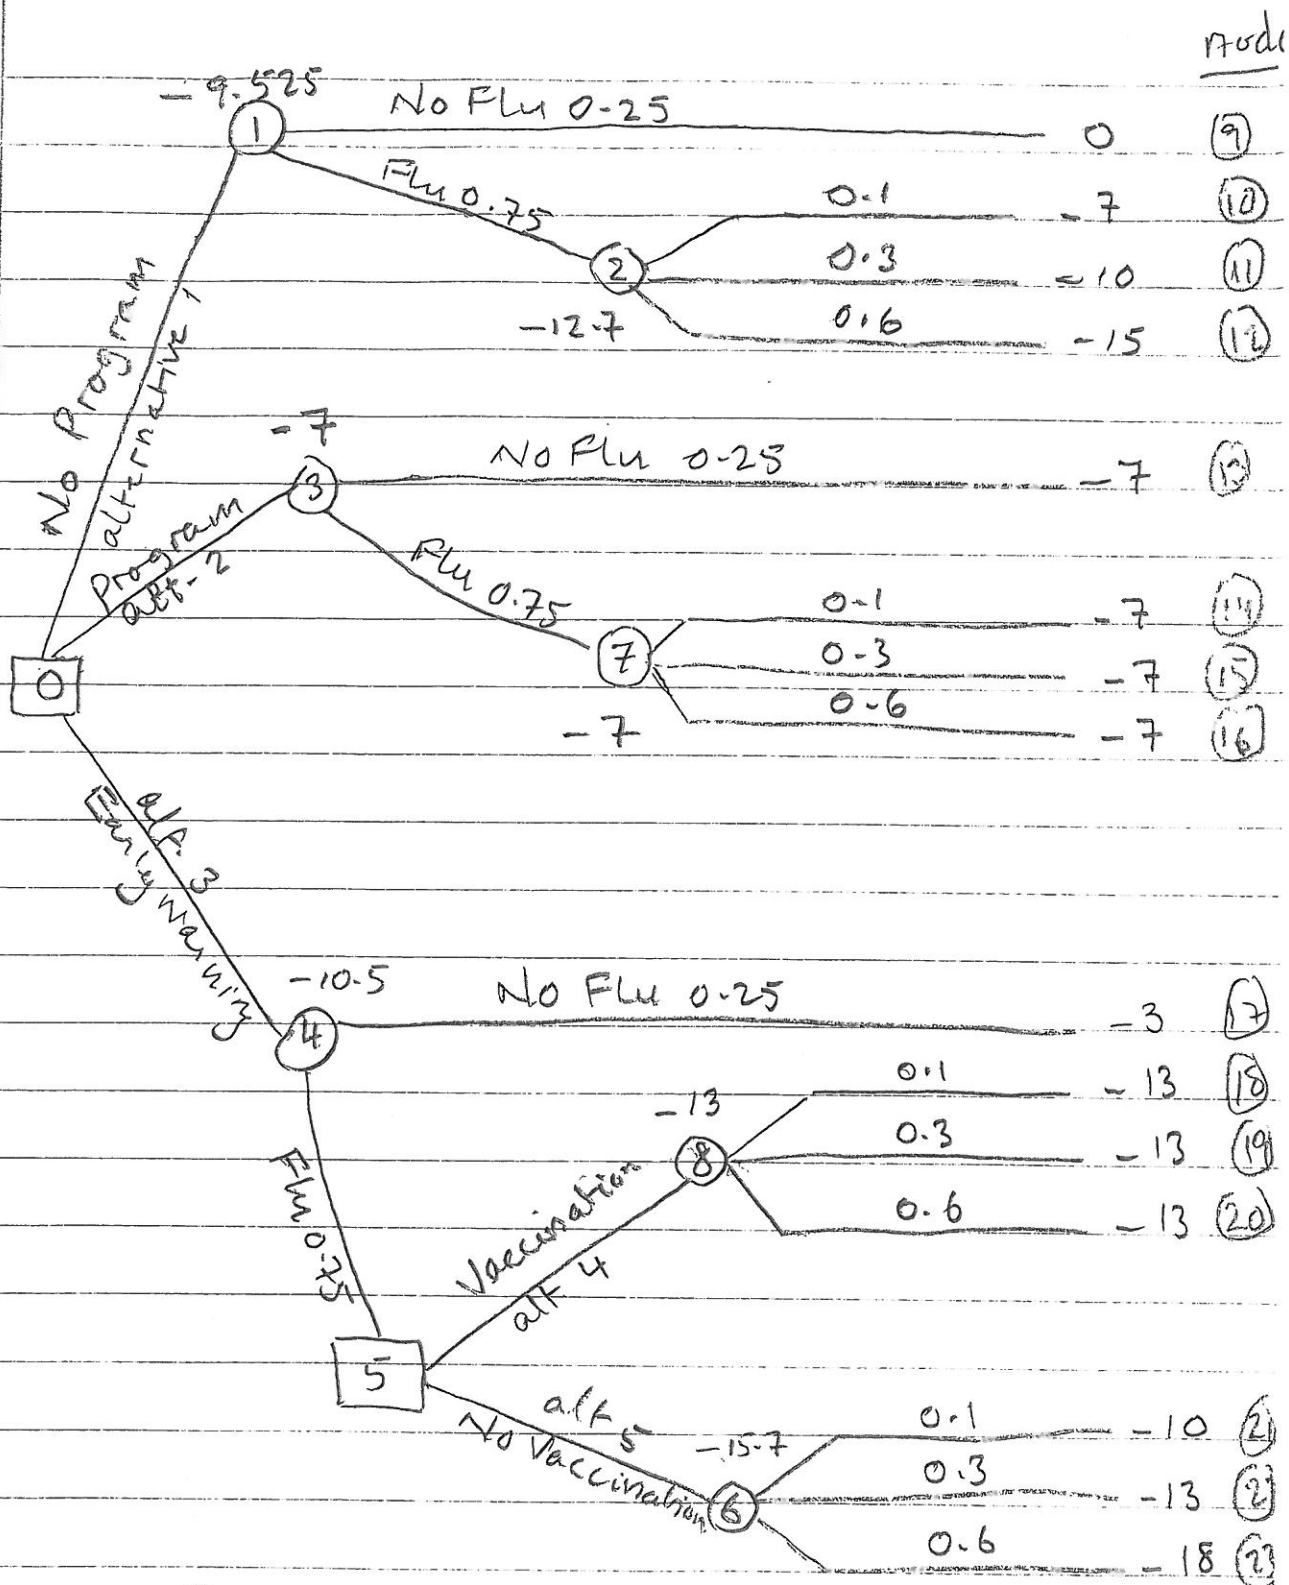 node
- 9.525
1
No Flu 0.25
0
9
Flu 0.75
0.1
- 7
10
2
0.3
- 10
11
-12.7
0.6
- 15
12
No Program
alternative 1
- 7
3
No Flu 0.25
- 7
13
Program
alt. 2
Flu 0.75
0.1
- 7
14
7
0.3
- 7
15
0.6
- 7
- 7
16
0
alt. 3
Early Warning
-10.5
4
No Flu 0.25
- 3
17
0.1
- 13
18
- 13
8
0.3
- 13
19
0.6
- 13
20
Flu 0.75
Vaccination
alt 4
5
alt 5
No Vaccination
-15.7
6
0.1
- 10
21
0.3
- 13
0.6
- 18